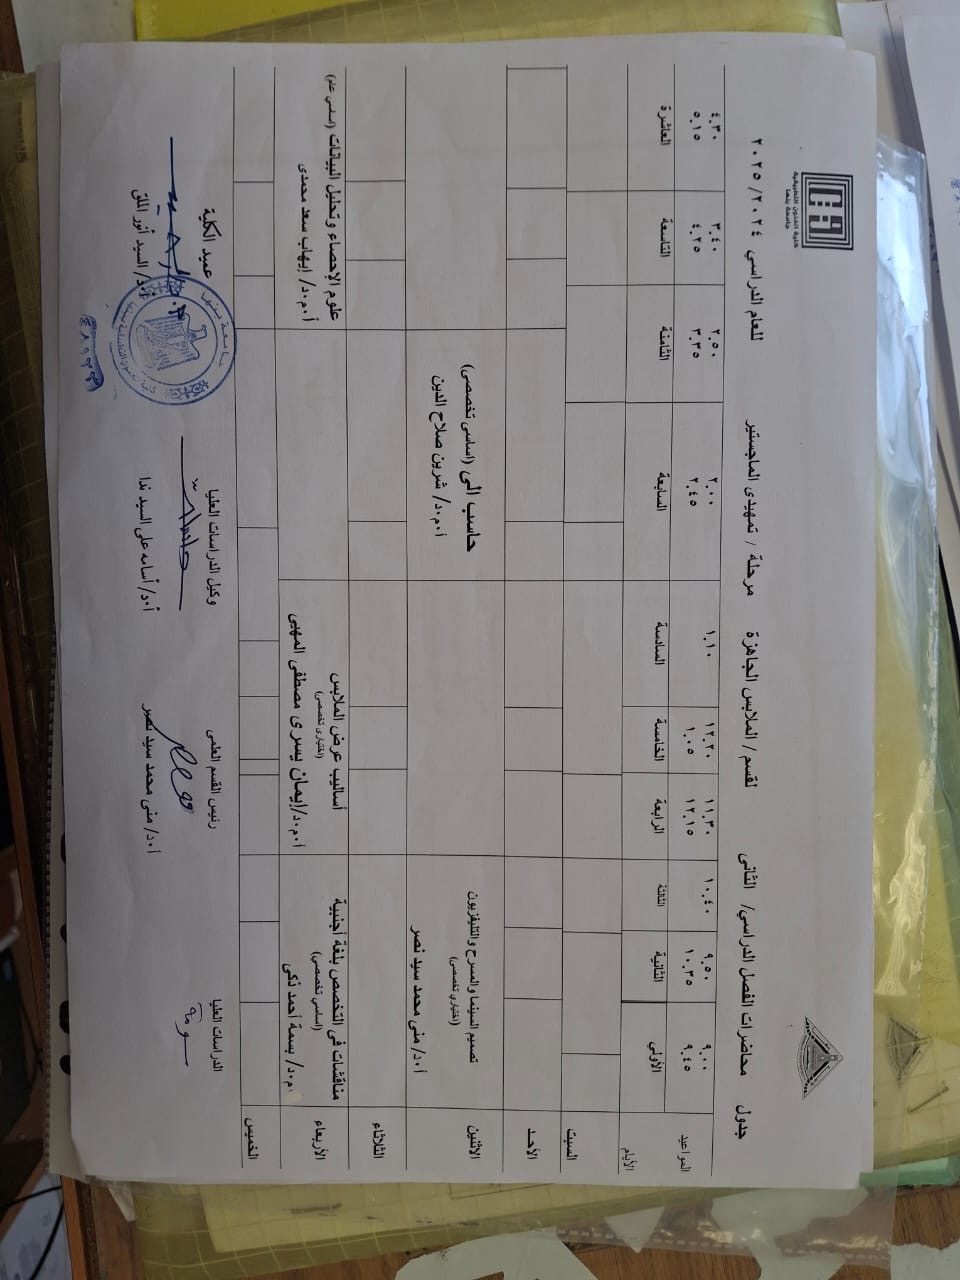 كلية الفنون التطبيقية
جامعة بنها
جدول محاضرات الفصل الدراسي/ الثانى لقسم / الملابس الجاهزة مرحلة / تمهيدى الماجستير للعام الدراسي ٢٠٢٤/ ٢٠٢٥
المواعيد ٩.٠٠ ٩.٥٠ ١٠.٤٠ ١١.٣٠ ١٢.٢٠ ١.١٠ ٢.٠٠ ٢.٥٠ ٣.٤٠ ٤.٣٠
٩.٤٥ ١٠.٣٥ ١٢.١٥ ١.٠٥ ٢.٤٥ ٣.٣٥ ٤.٢٥ ٥.١٥
الأيام الأولي الثانية الثالثة الرابعة الخامسة السادسة السابعة الثامنة التاسعة العاشرة
السبت
الأحد
الاثنين
تصميم السينما والمسرح والتليفزيون
(اختياري تخصصى)
أ.د/ منى محمد سيد نصر
حاسب الى (اساسى تخصصى)
أ.م.د/ شرين صلاح الدين
الثلاثاء
الأربعاء
مناقشات فى التخصص بلغة أجنبية
(اساسي تخصصى)
م.د/ بسمة أحمد ذكى
أساليب عرض الملابس
(اختيارى تخصصى)
أ.م.د/إيمان يسرى مصطفى الميهى
علوم الإحصاء وتحليل البيانات (اساسي عام)
أ.م.د/ إيهاب سعد محمدى
الخميس
الدراسات العليا رئيس القسم العلمى وكيل الدراسات العليا عميد الكلية
أ.د/ منى محمد سيد نصر أ.د/ أسامه على السيد ندا أ.د/ السيد أنور الملق